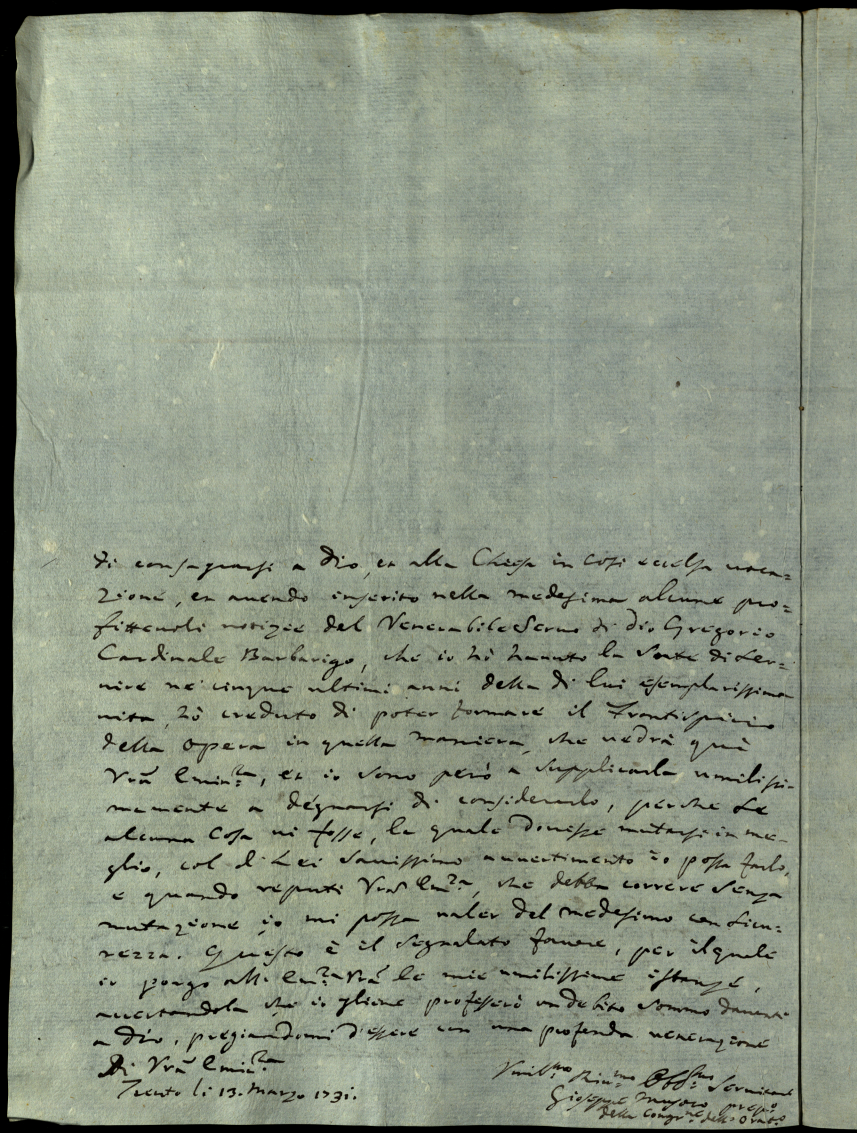 di consagrarsi a Dio, et alla Chiesa in così eccelsa voca=
zione, et avendo inserito nella medesima alcune pro=
fittevoli notizie del Venerabile Servo di Dio Gregorio
Cardinale Barbarigo, che io hò havuto la Sorte di Ser=
vire ne cinque ultimi anni della di lui esemplarissima
vita, hò creduto di poter formare il Frontispicio
della opera in quella maniera, che vedrà quì
Vrã Emin.za, et io sono però a supplicarla umilissi=
mamente a degnarsi di considerarlo, perche se
alcuna Cosa vi fosse, la quale dovesse mutarsi in me=
glio, col di Lei Savissimo avvertimento io possa farlo,
e quando reputi Vrã Em.za, che debba correre Senza
mutazione io mi possa valer del medesimo con Sicu=
rezza. Questo è il Segnalato favore, per il quale
io porgo all' Em.za Vrã le mie umilissime istanze,
accertandola che io gliene professerò un debito Sommo davanti
a Dio, pregiandomi d'essere con una profonda venerazione
Di Vrã Emin.za
Trento li 13. Marzo 1731.
Umil.mo Div.mo Obb.mo Servitore
Giuseppe prep.o
della Congr.ne dell'Orat.o